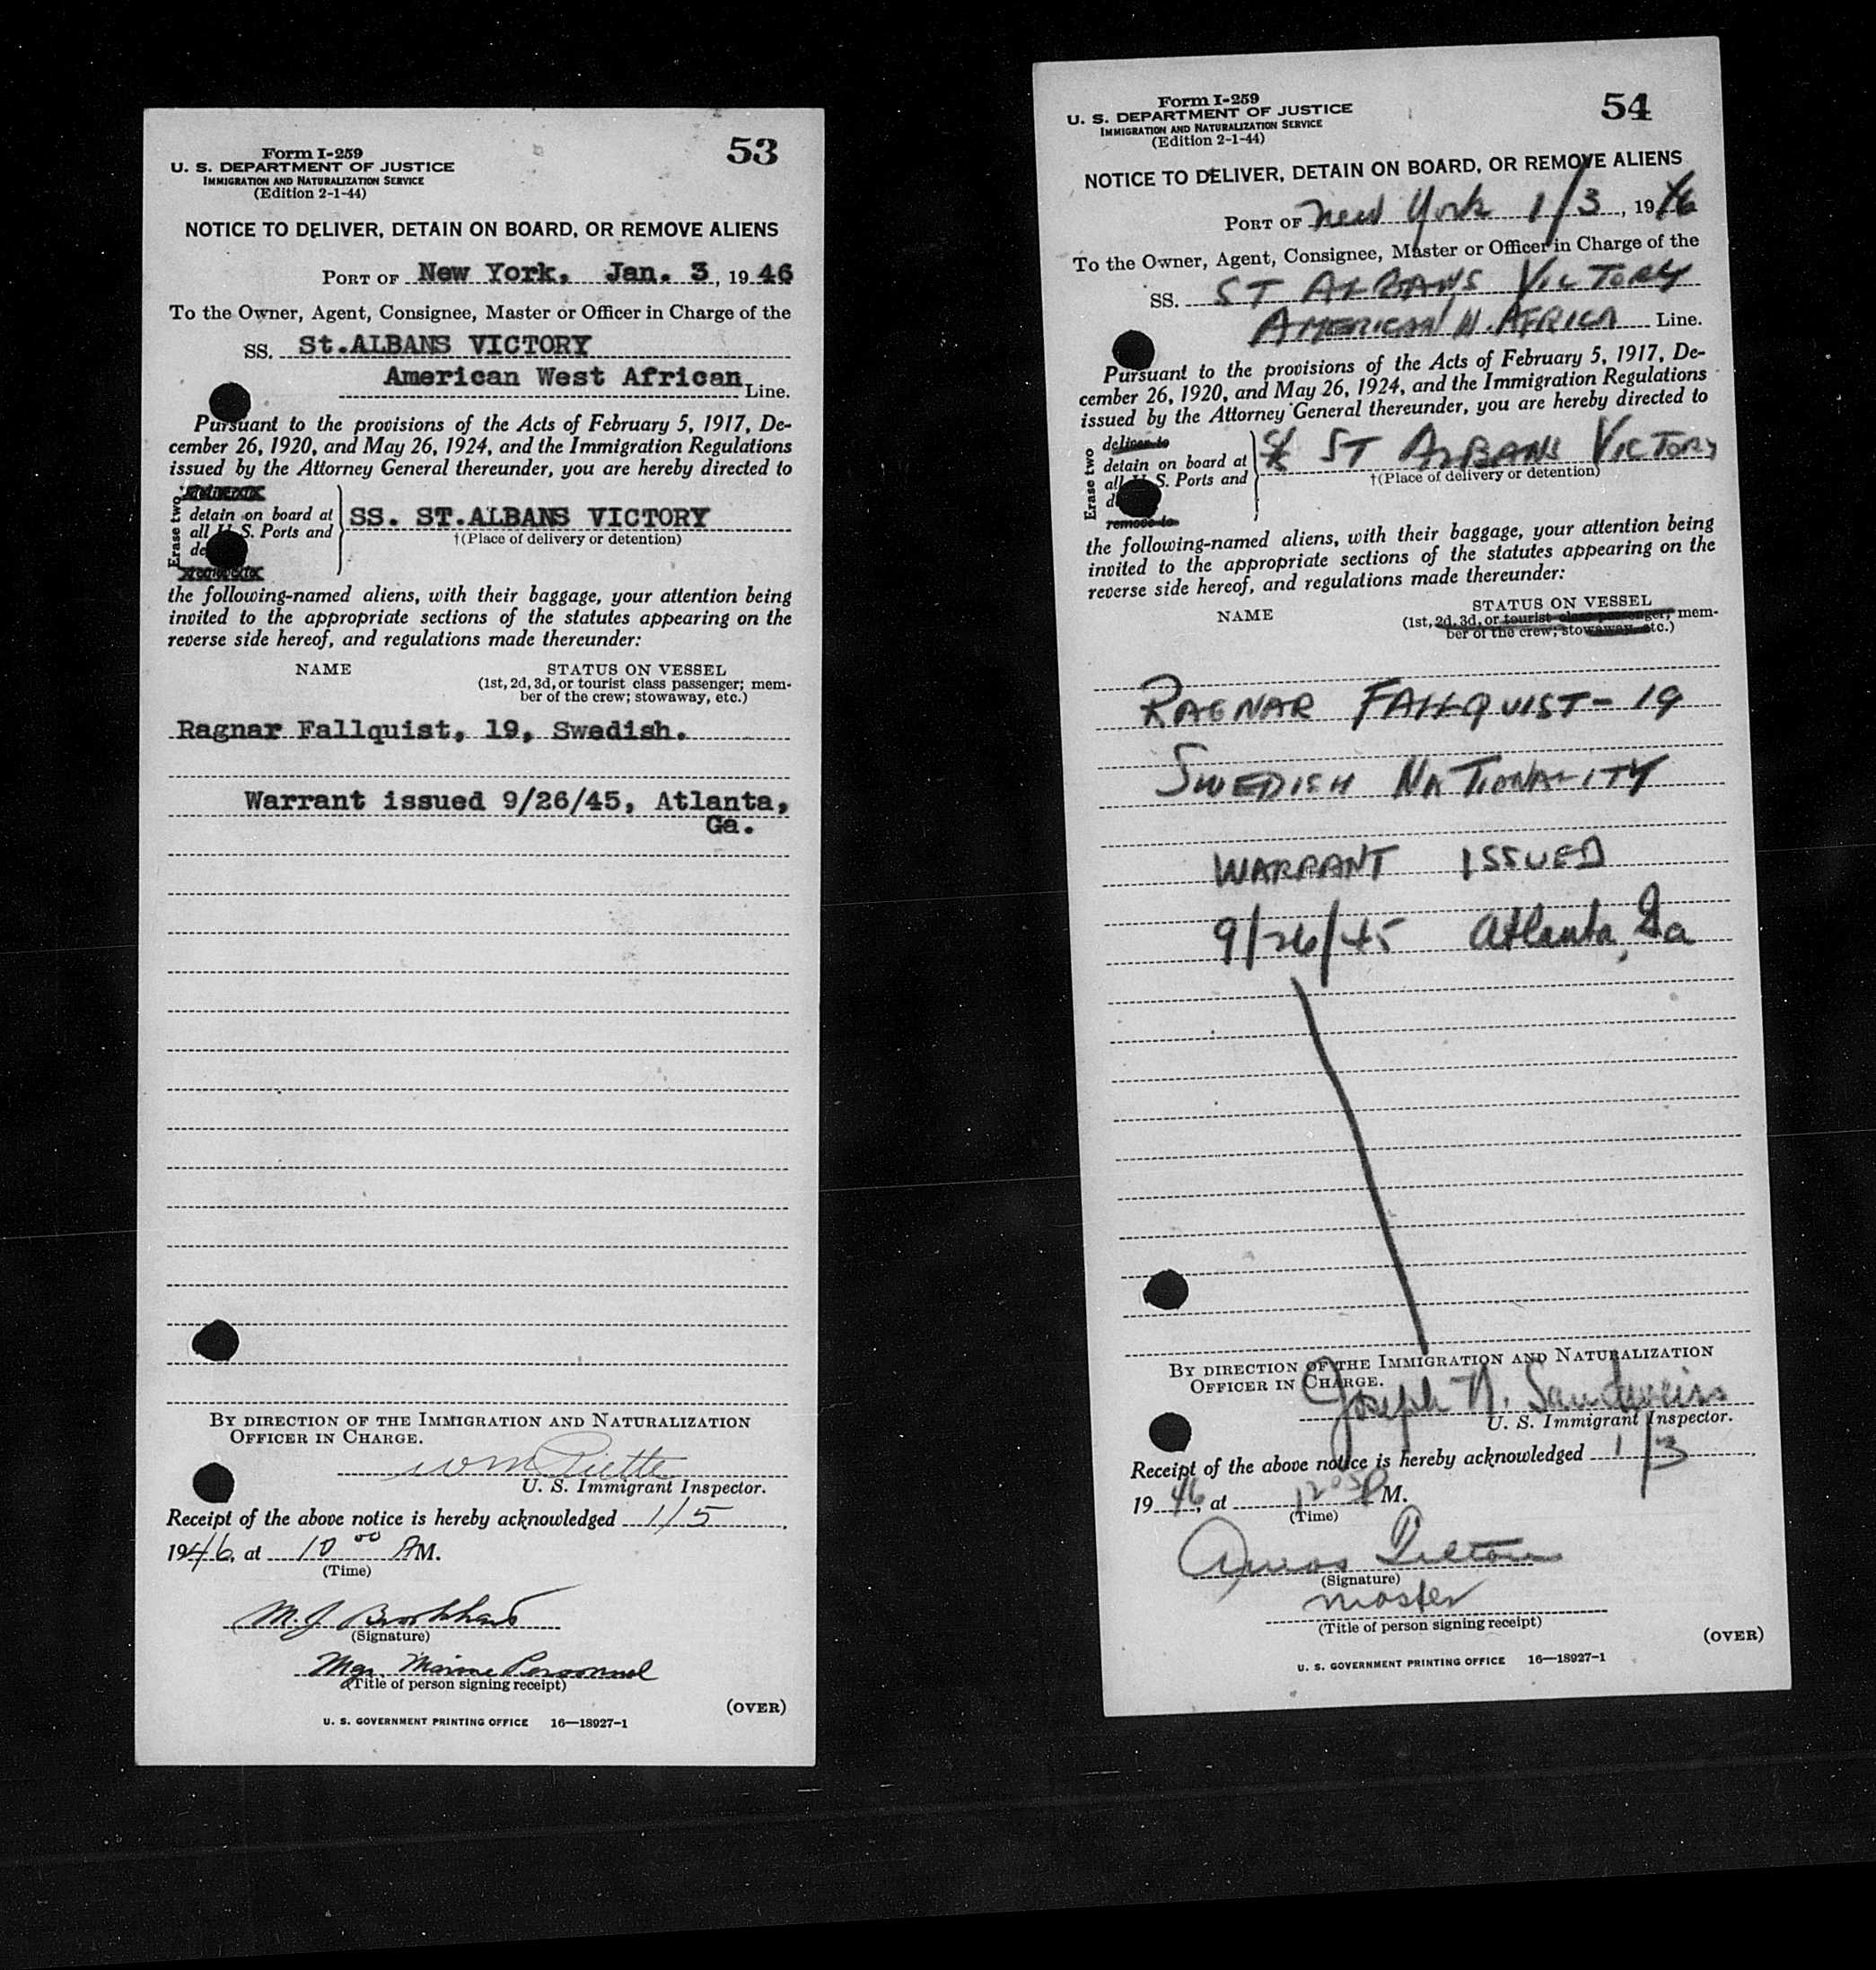 53
Form I-259
U. S. DEPARTMENT OF JUSTICE
IMMIGRATION AND NATURALIZATION SERVICE
(Edition 2-1-44)
NOTICE TO DELIVER, DETAIN ON BOARD, OR REMOVE ALIENS
PORT OF New York, Jan. 3, 1946
To the Owner, Agent, Consignee, Master or Officer in Charge of the
SS. St.ALBANS VICTORY
American West African Line.
Pursuant to the provisions of the Acts of February 5, 1917, De-
cember 26, 1920, and May 26, 1924, and the Immigration Regulations
issued by the Attorney General thereunder, you are hereby directed to
Erase two
detain on board at
all U. S. Ports and
SS. ST.ALBANS VICTORY
†(Place of delivery or detention)
the following-named aliens, with their baggage, your attention being
invited to the appropriate sections of the statutes appearing on the
reverse side hereof, and regulations made thereunder:
NAME STATUS ON VESSEL
(1st, 2d, 3d, or tourist class passenger; mem-
ber of the crew; stowaway, etc.)
Ragnar Fallquist, 19, Swedish.
Warrant issued 9/26/45, Atlanta,
Ga.
BY DIRECTION OF THE IMMIGRATION AND NATURALIZATION
OFFICER IN CHARGE.
Wm Piette
U. S. Immigrant Inspector.
Receipt of the above notice is hereby acknowledged 1/5,
1946, at 10 00 AM.
(Time)
M. J.
(Signature)
Mgr. Marine Personnel
(Title of person signing receipt)
(OVER)
U. S. GOVERNMENT PRINTING OFFICE 16—18927-1
54
Form I-259
U. S. DEPARTMENT OF JUSTICE
IMMIGRATION AND NATURALIZATION SERVICE
(Edition 2-1-44)
NOTICE TO DELIVER, DETAIN ON BOARD, OR REMOVE ALIENS
PORT OF New York 1/3, 1946
To the Owner, Agent, Consignee, Master or Officer in Charge of the
SS. ST ALBANS VICTORY
AMERICAN W. AFRICA Line.
Pursuant to the provisions of the Acts of February 5, 1917, De-
cember 26, 1920, and May 26, 1924, and the Immigration Regulations
issued by the Attorney General thereunder, you are hereby directed to
Erase two
deliver to
detain on board at
all U. S. Ports and
remove to
ST ALBANS VICTORY
†(Place of delivery or detention)
the following-named aliens, with their baggage, your attention being
invited to the appropriate sections of the statutes appearing on the
reverse side hereof, and regulations made thereunder:
NAME STATUS ON VESSEL
(1st, 2d, 3d, or tourist class passenger; mem-
ber of the crew; stowaway, etc.)
RAGNAR FALLQUIST - 19
SWEDISH NATIONALITY
WARRANT ISSUED
9/26/45 Atlanta, Ga
BY DIRECTION OF THE IMMIGRATION AND NATURALIZATION
OFFICER IN CHARGE.
Joseph N. Sandweiss
U. S. Immigrant Inspector.
Receipt of the above notice is hereby acknowledged 1/3,
1946, at 12 05 PM.
(Time)
Amos
(Signature)
master
(Title of person signing receipt)
(OVER)
U. S. GOVERNMENT PRINTING OFFICE 16—18927-1